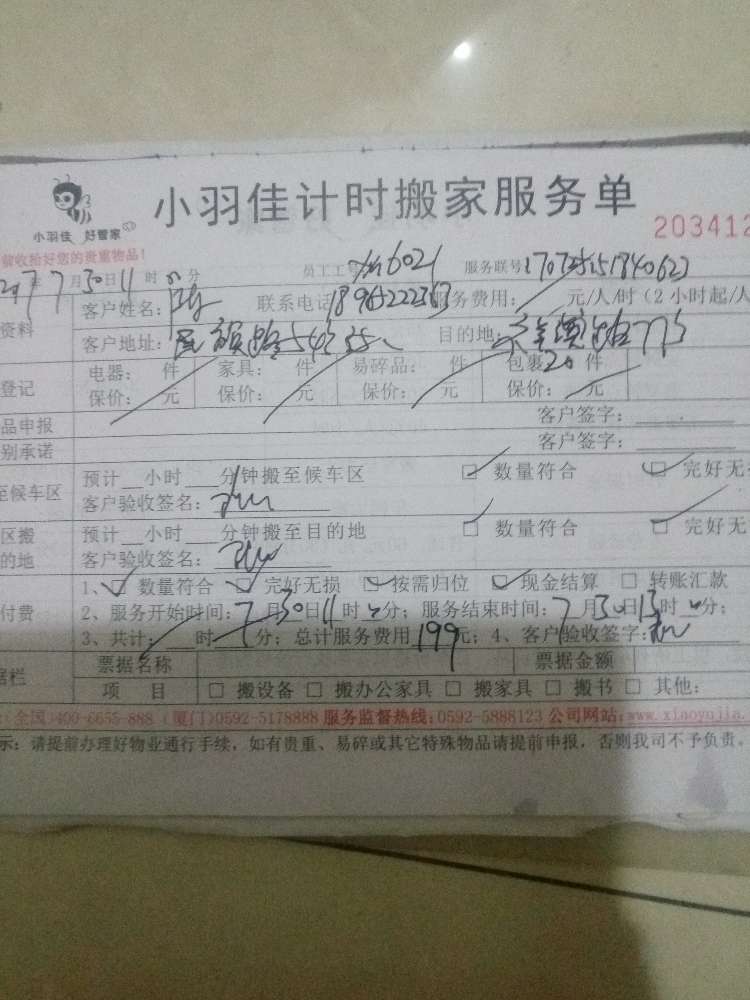 小羽佳计时搬家服务单
小羽佳 好管家
203412
前收拾好您的贵重物品!
年7月30日11时 分 员工工号 6021 服务联号:
资料 客户姓名: 联系电话 服务费用: 元/人/时(2小时起/人
客户地址:民族路 目的地:
登记 电器: 件 家具: 件 易碎品: 件 包裹20件
保价: 元 保价: 元 保价: 元 保价: 元
品申报 客户签字:
别承诺 客户签字:
至候车区 预计__小时___分钟搬至候车区 □ 数量符合 □ 完好无
客户验收签名:
区搬 预计__小时___分钟搬至目的地 □ 数量符合 □ 完好无
的地 客户验收签名:
1、□ 数量符合 □ 完好无损 □ 按需归位 □ 现金结算 □ 转账汇款
付费 2、服务开始时间:7月30日11时 分;服务结束时间:7月30日13时 分;
3、共计: 时 分;总计服务费用199元;4、客户验收签字:
据栏 票据名称 票据金额
项 目 □ 搬设备 □ 搬办公家具 □ 搬家具 □ 搬书 □ 其他:
(全国)400-6655-888 (厦门)0592-5178888 服务监督热线:0592-5888123 公司网站:www.xiaoyujia.
示:请提前办理好物业通行手续,如有贵重、易碎或其它特殊物品请提前申报,否则我司不予负责。